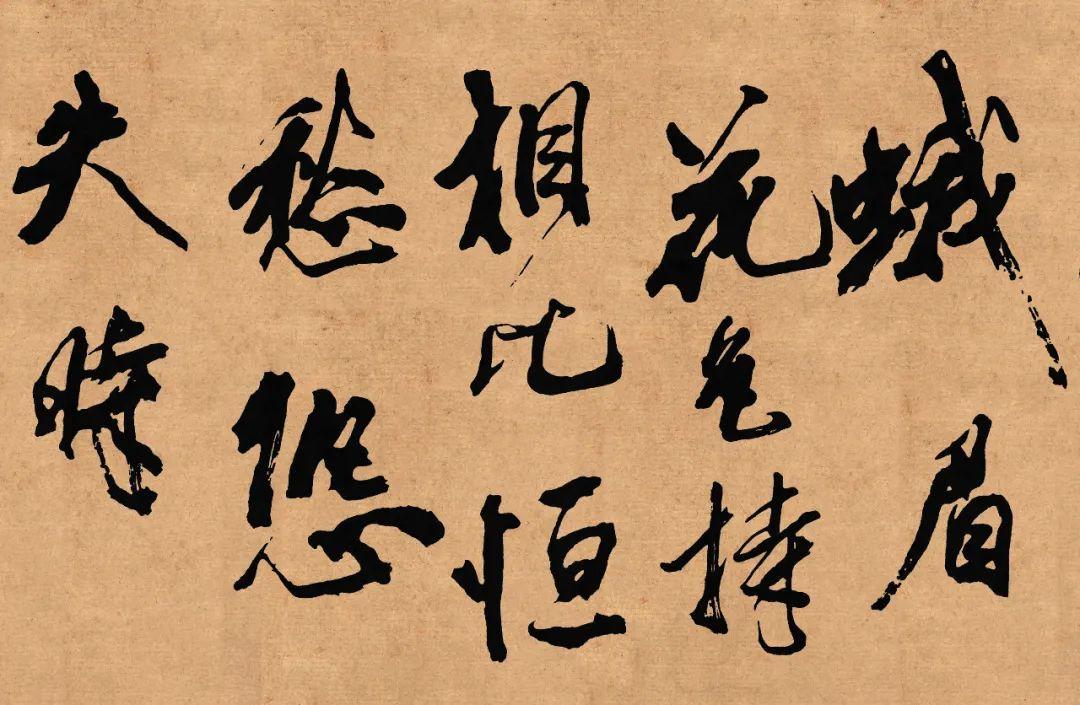 蛾眉
花色捧
相比恒
愁
失時